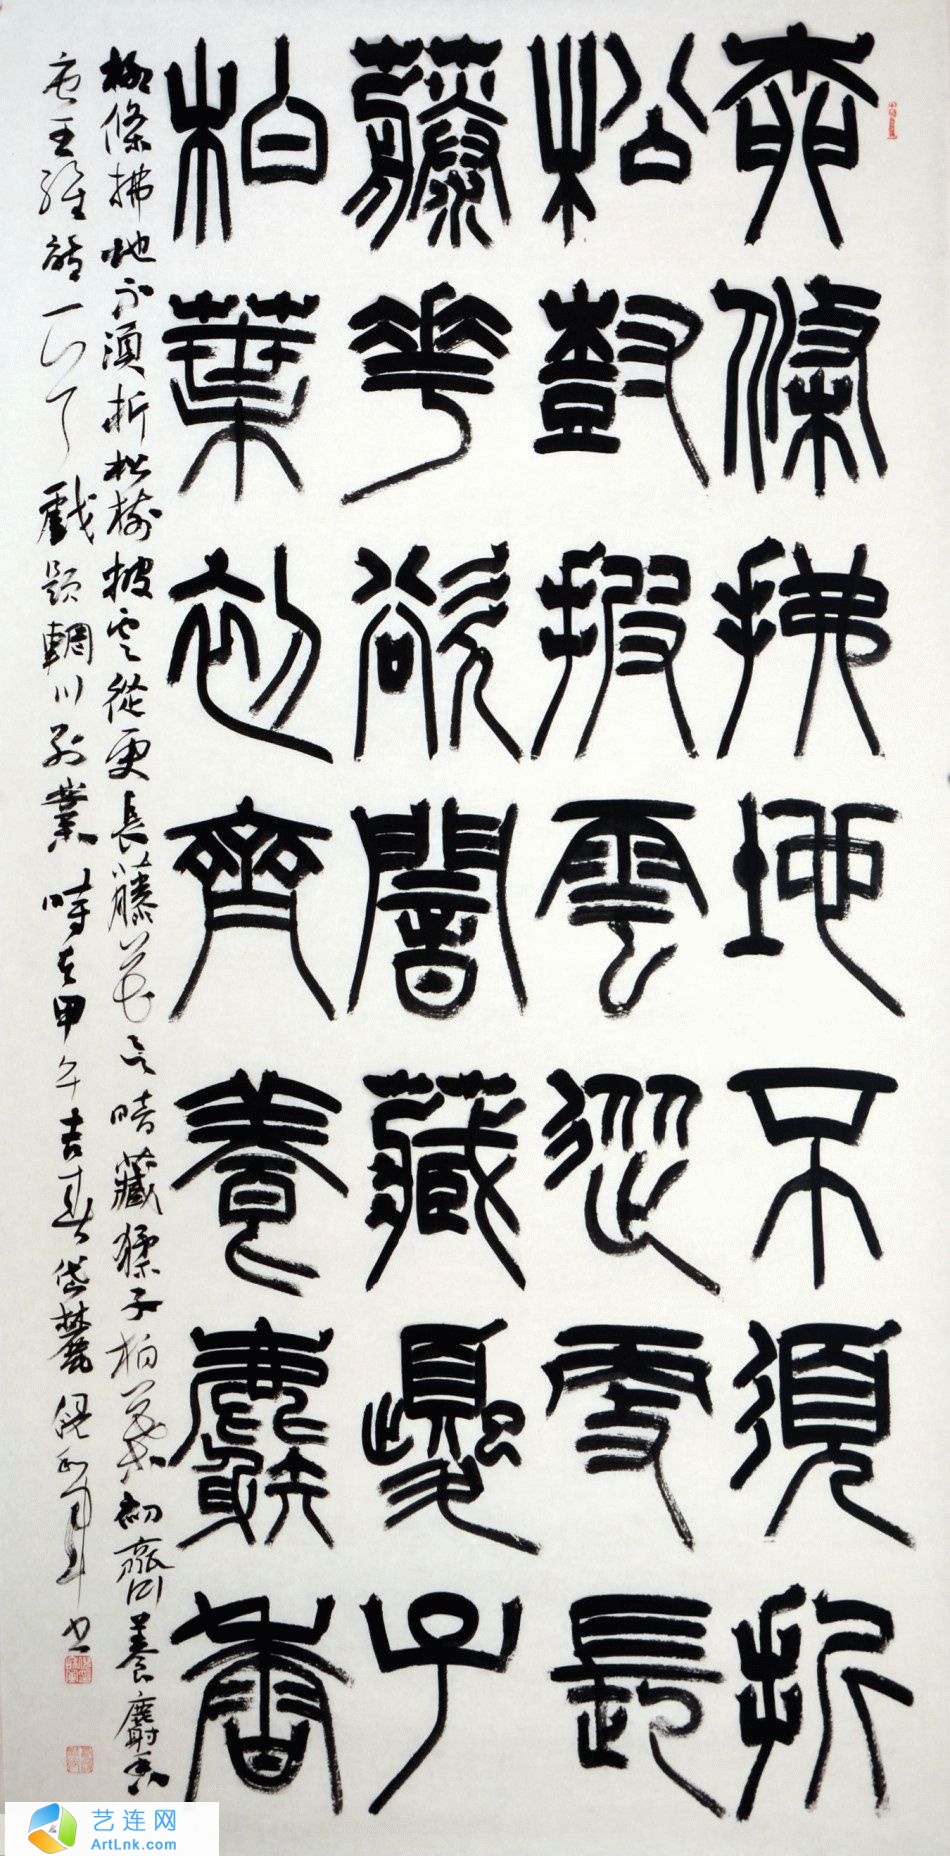 柳條拂地不須折
松樹披雲從更長
藤花欲暗藏猱子
柏葉初齊養麝香
柳條拂地不須折松樹披雲從更長藤花欲暗藏猱子柏葉初齊養麝香
唐王維詩一首戲題輞川別業時在甲午吉春岱麓
艺连网
ArtLnk.com